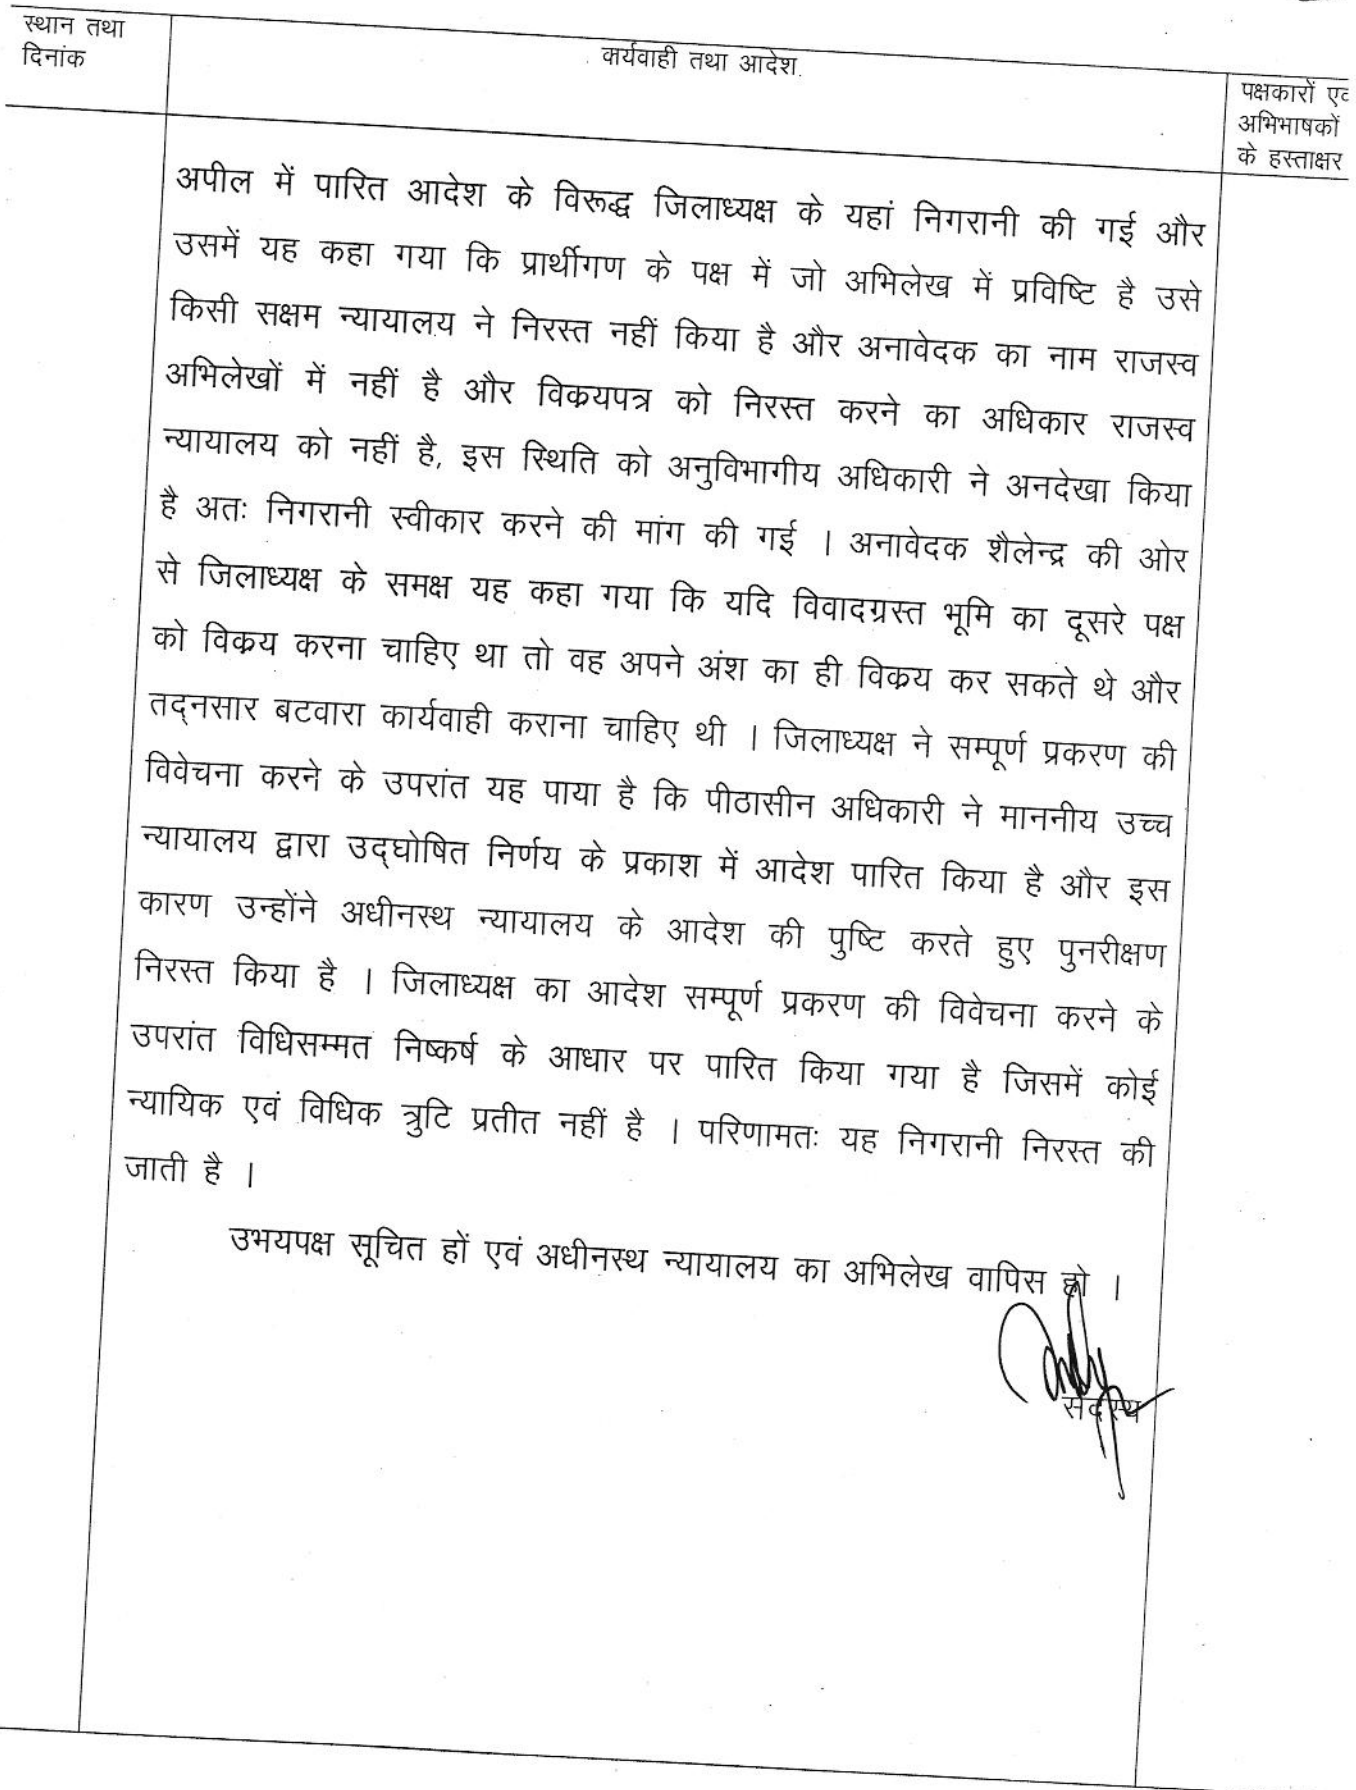 स्थान तथा
दिनांक
कार्यवाही तथा आदेश
पक्षकारों एवं
अभिभाषकों
के हस्ताक्षर
अपील में पारित आदेश के विरूद्ध जिलाध्यक्ष के यहां निगरानी की गई और
उसमें यह कहा गया कि प्रार्थीगण के पक्ष में जो अभिलेख में प्रविष्टि है उसे
किसी सक्षम न्यायालय ने निरस्त नहीं किया है और अनावेदक का नाम राजस्व
अभिलेखों में नहीं है और विक्रयपत्र को निरस्त करने का अधिकार राजस्व
न्यायालय को नहीं है, इस स्थिति को अनुविभागीय अधिकारी ने अनदेखा किया
है अतः निगरानी स्वीकार करने की मांग की गई । अनावेदक शैलेन्द्र की ओर
से जिलाध्यक्ष के समक्ष यह कहा गया कि यदि विवादग्रस्त भूमि का दूसरे पक्ष
को विक्रय करना चाहिए था तो वह अपने अंश का ही विक्रय कर सकते थे और
तद्नसार बटवारा कार्यवाही कराना चाहिए थी । जिलाध्यक्ष ने सम्पूर्ण प्रकरण की
विवेचना करने के उपरांत यह पाया है कि पीठासीन अधिकारी ने माननीय उच्च
न्यायालय द्वारा उद्घोषित निर्णय के प्रकाश में आदेश पारित किया है और इस
कारण उन्होंने अधीनस्थ न्यायालय के आदेश की पुष्टि करते हुए पुनरीक्षण
निरस्त किया है । जिलाध्यक्ष का आदेश सम्पूर्ण प्रकरण की विवेचना करने के
उपरांत विधिसम्मत निष्कर्ष के आधार पर पारित किया गया है जिसमें कोई
न्यायिक एवं विधिक त्रुटि प्रतीत नहीं है । परिणामतः यह निगरानी निरस्त की
जाती है ।
उभयपक्ष सूचित हों एवं अधीनस्थ न्यायालय का अभिलेख वापिस हो ।
सदस्य